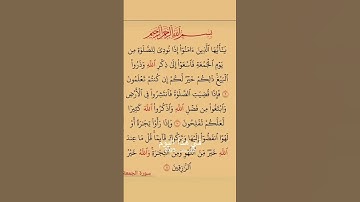 بِسْمِ اللَّهِ الرَّحْمَٰنِ الرَّحِيمِ
يَٰٓأَيُّهَا الَّذِينَ ءَامَنُوٓا۟ إِذَا نُودِىَ لِلصَّلَوٰةِ مِن
يَوْمِ الْجُمُعَةِ فَاسْعَوْا۟ إِلَىٰ ذِكْرِ اللَّهِ وَذَرُوا۟
الْبَيْعَ ذَٰلِكُمْ خَيْرٌ لَّكُمْ إِن كُنتُمْ تَعْلَمُونَ
فَإِذَا قُضِيَتِ الصَّلَوٰةُ فَانتَشِرُوا۟ فِى الْأَرْضِ
وَابْتَغُوا۟ مِن فَضْلِ اللَّهِ وَاذْكُرُوا۟ اللَّهَ كَثِيرًا
لَّعَلَّكُمْ تُفْلِحُونَ وَإِذَا رَأَوْا۟ تِجَٰرَةً أَوْ
لَهْوًا انفَضُّوٓا۟ إِلَيْهَا وَتَرَكُوكَ قَآئِمًا قُلْ مَا عِندَ
اللَّهِ خَيْرٌ مِّنَ اللَّهْوِ وَمِنَ التِّجَٰرَةِ وَاللَّهُ خَيْرُ
الرَّٰزِقِينَ
سورة الجمعة